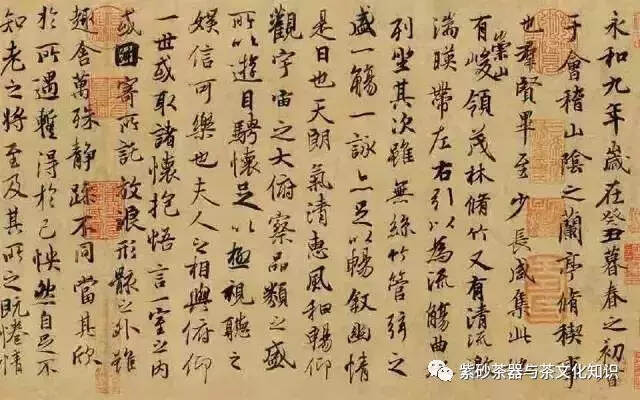 永和九年歲在癸丑暮春之初會
于會稽山陰之蘭亭脩稧事
也群賢畢至少長咸集此地
有崇山峻領茂林脩竹又有清流激
湍暎帶左右引以為流觴曲
列坐其次雖無絲竹管弦之
盛一觴一詠亦足以暢敘幽情
是日也天朗氣清惠風和暢仰
觀宇宙之大俯察品類之盛
所以遊目騁懷足以極視聽之
娛信可樂也夫人之相與俯仰
一世或取諸懷抱悟言一室之內
或因寄所託放浪形骸之外雖
趣舍萬殊靜躁不同當其欣
於所遇蹔得於己怏然自足不
知老之將至及其所之既惓情
紫砂茶器与茶文化知识